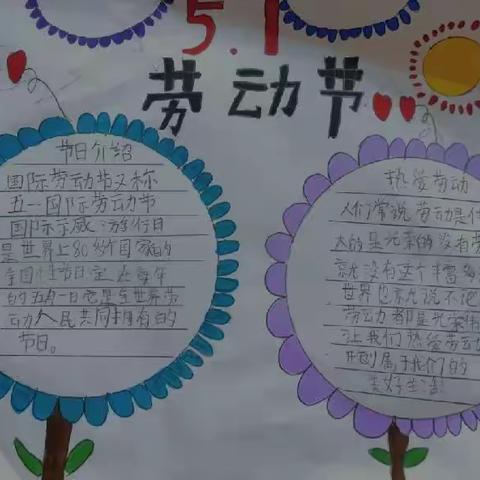 5.1
劳动节
节日介绍
国际劳动节又称
五一国际劳动节
国际示威游行日
是世界上80多个国家的
全国性节日定在每年
的五月一日它是全世界劳
动人民共同拥有的
节日。
热爱劳动
人们常说劳动是伟
大的是光荣的没有劳
就没有这个丰富多
世界也就说不
劳动都是光荣
让我们热爱劳动
开创属于我们的
美好生活